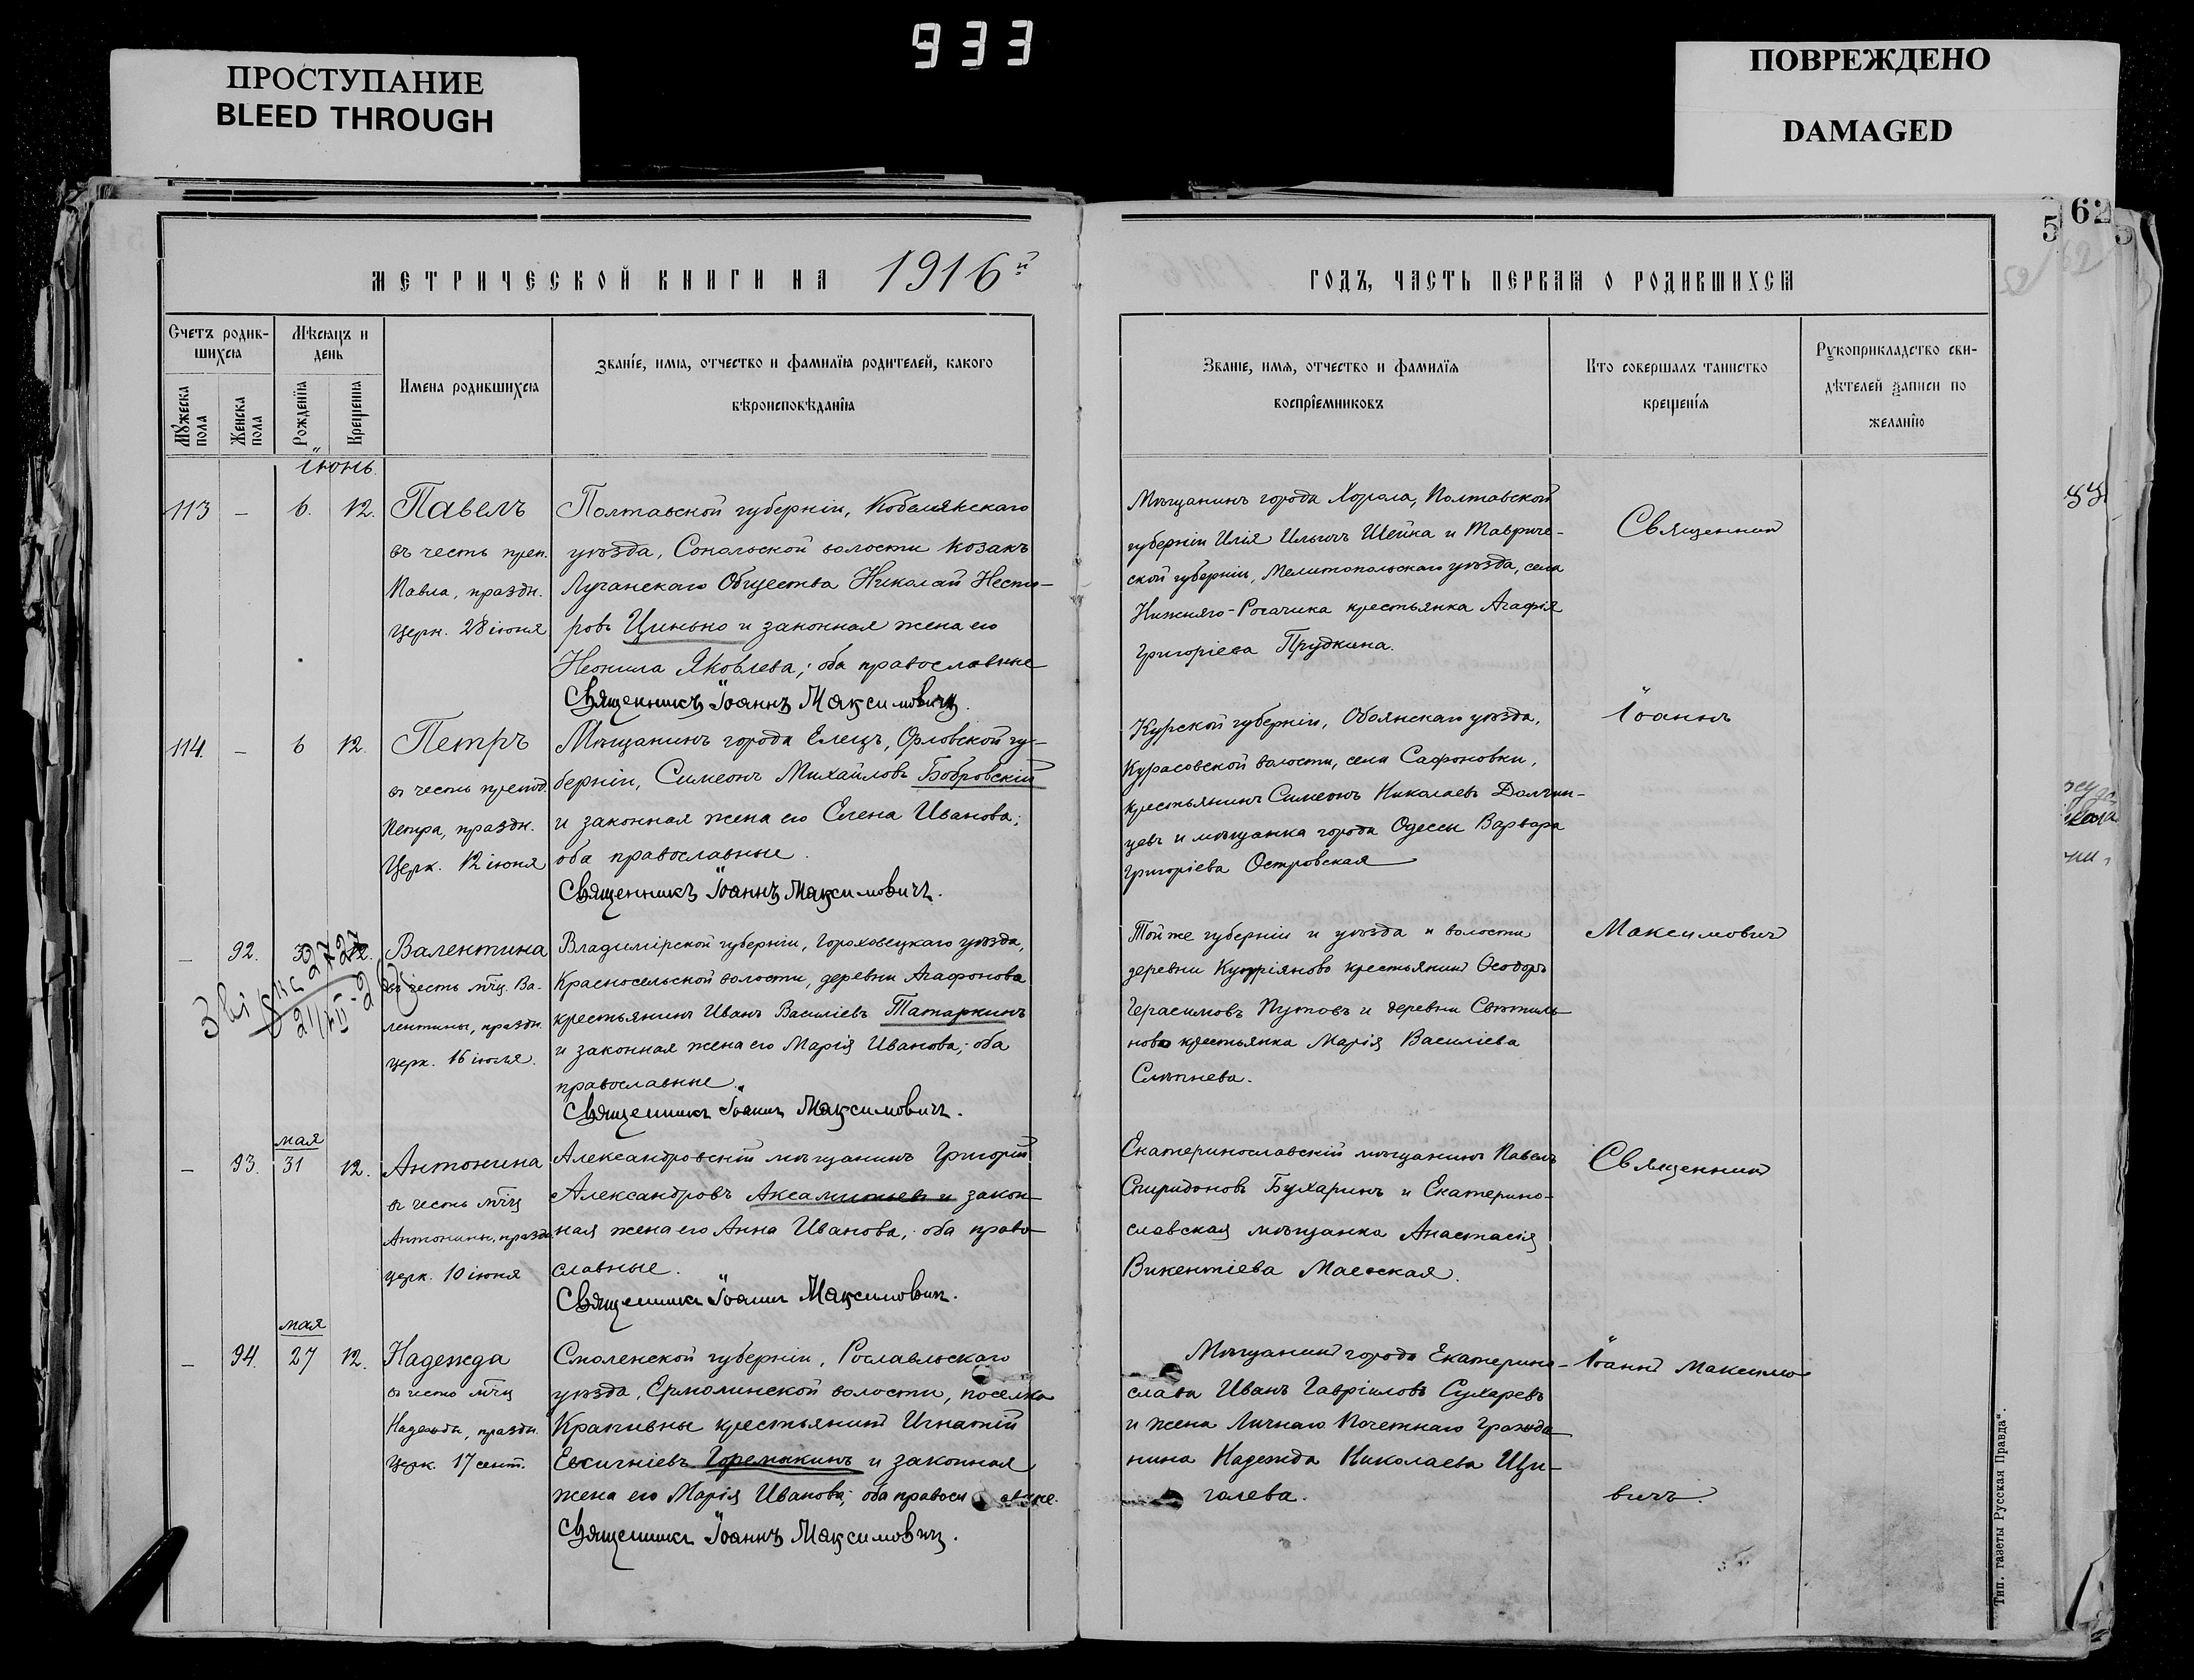 933
ПРОСТУПАНИЕ
BLEED THROUGH
ПОВРЕЖДЕНО
DAMAGED
62
5
МЕТРИЧЕСКОЙ КНИГИ НА 1916й
ГОДЪ, ЧАСТЬ ПЕРВАЯ О РОДИВШИХСЯ
Счетъ родив-
шихся
Мѣсяцъ и
день
Мужеска пола
Женска пола
Рожденія
Крещенія
Имена родившихся
Званіе, имя, отчество и фамилія родителей, какого
вѣроисповѣданія
Званіе, имя, отчество и фамилія
воспріемниковъ
Кто совершалъ таинство
крещенія
Рукоприкладство сви-
дѣтелей записи по
желанію
Іюнь.
113 — 6. 12. Павелъ
въ честь преп.
Павла, праздн.
церк. 28 іюня
Полтавской губерніи, Кобелякскаго
уѣзда, Сокольской волости козакъ
Луганскаго Общества Николай Несто-
ровъ Цинько и законная жена его
Неонила Яковлева; оба православные
Священникъ Іоаннъ Максимовичъ.
Мѣщанинъ города Хорола, Полтавской
губерніи Илія Ильичъ Шейка и Тавриче-
ской губерніи, Мелитопольскаго уѣзда, села
Нижняго-Рогачика крестьянка Агафія
Григоріева Прудкина.
Священникъ
114. — 6 12. Петръ
въ честь препод.
Петра, праздн.
Церк. 12 іюня
Мѣщанинъ города Елецъ, Орловской гу-
берніи, Симеонъ Михайловъ Бобровскій
и законная жена его Елена Иванова;
оба православные.
Священникъ Іоаннъ Максимовичъ.
Курской губерніи, Обоянскаго уѣзда,
Курасовской волости, села Сафоновки,
крестьянинъ Симеонъ Николаевъ Должи-
цевъ и мѣщанка города Одессы Варвара
Григоріева Островская
Іоаннъ
— 92. 12. Валентина
въ честь мч͠ц. Ва-
лентины, праздн.
церк. 16 іюля.
Владимірской губерніи, Гороховецкаго уѣзда,
Красносельской волости, деревни Агафонова
крестьянинъ Иванъ Василіевъ Татаркинъ
и законная жена его Марія Иванова; оба
православные.
Священникъ Іоаннъ Максимовичъ.
Той же губерніи и уѣзда и волости
деревни Купріяново крестьянинъ Ѳеодоръ
Герасимовъ Путовъ и деревни Свѣтиль-
ново крестьянка Марія Василіева
Слѣпнева.
Максимовичъ
мая
— 93. 31 12. Антонина
въ честь мч͠ц
Антонины, праздн.
церк. 10 іюня
Александровскій мѣщанинъ Григорій
Александровъ Аксамитьевъ и закон-
ная жена его Анна Иванова; оба право-
славные.
Священникъ Іоаннъ Максимовичъ.
Екатеринославскій мѣщанинъ Павелъ
Спиридоновъ Бухаринъ и Екатерино-
славская мѣщанка Анастасія
Викентіева Маевская.
Священникъ
мая
— 94. 27 12. Надежда
въ честь мч͠ц
Надежды, праздн.
Церк. 17 сент.
Смоленской губерніи, Рославльскаго
уѣзда, Ермолинской волости, поселка
Крапивны крестьянинъ Игнатій
Евсигніевъ Горемыкинъ и законная
жена его Марія Иванова; оба православные.
Священникъ Іоаннъ Максимовичъ.
Мѣщанинъ города Екатерино-
слава Иванъ Гавріиловъ Сухаревъ
и жена Личнаго Почетнаго Гражда-
нина Надежда Николаева Щи-
голева.
Іоаннъ Максимо-
вичъ.
Тип. газеты Русская Правда“.